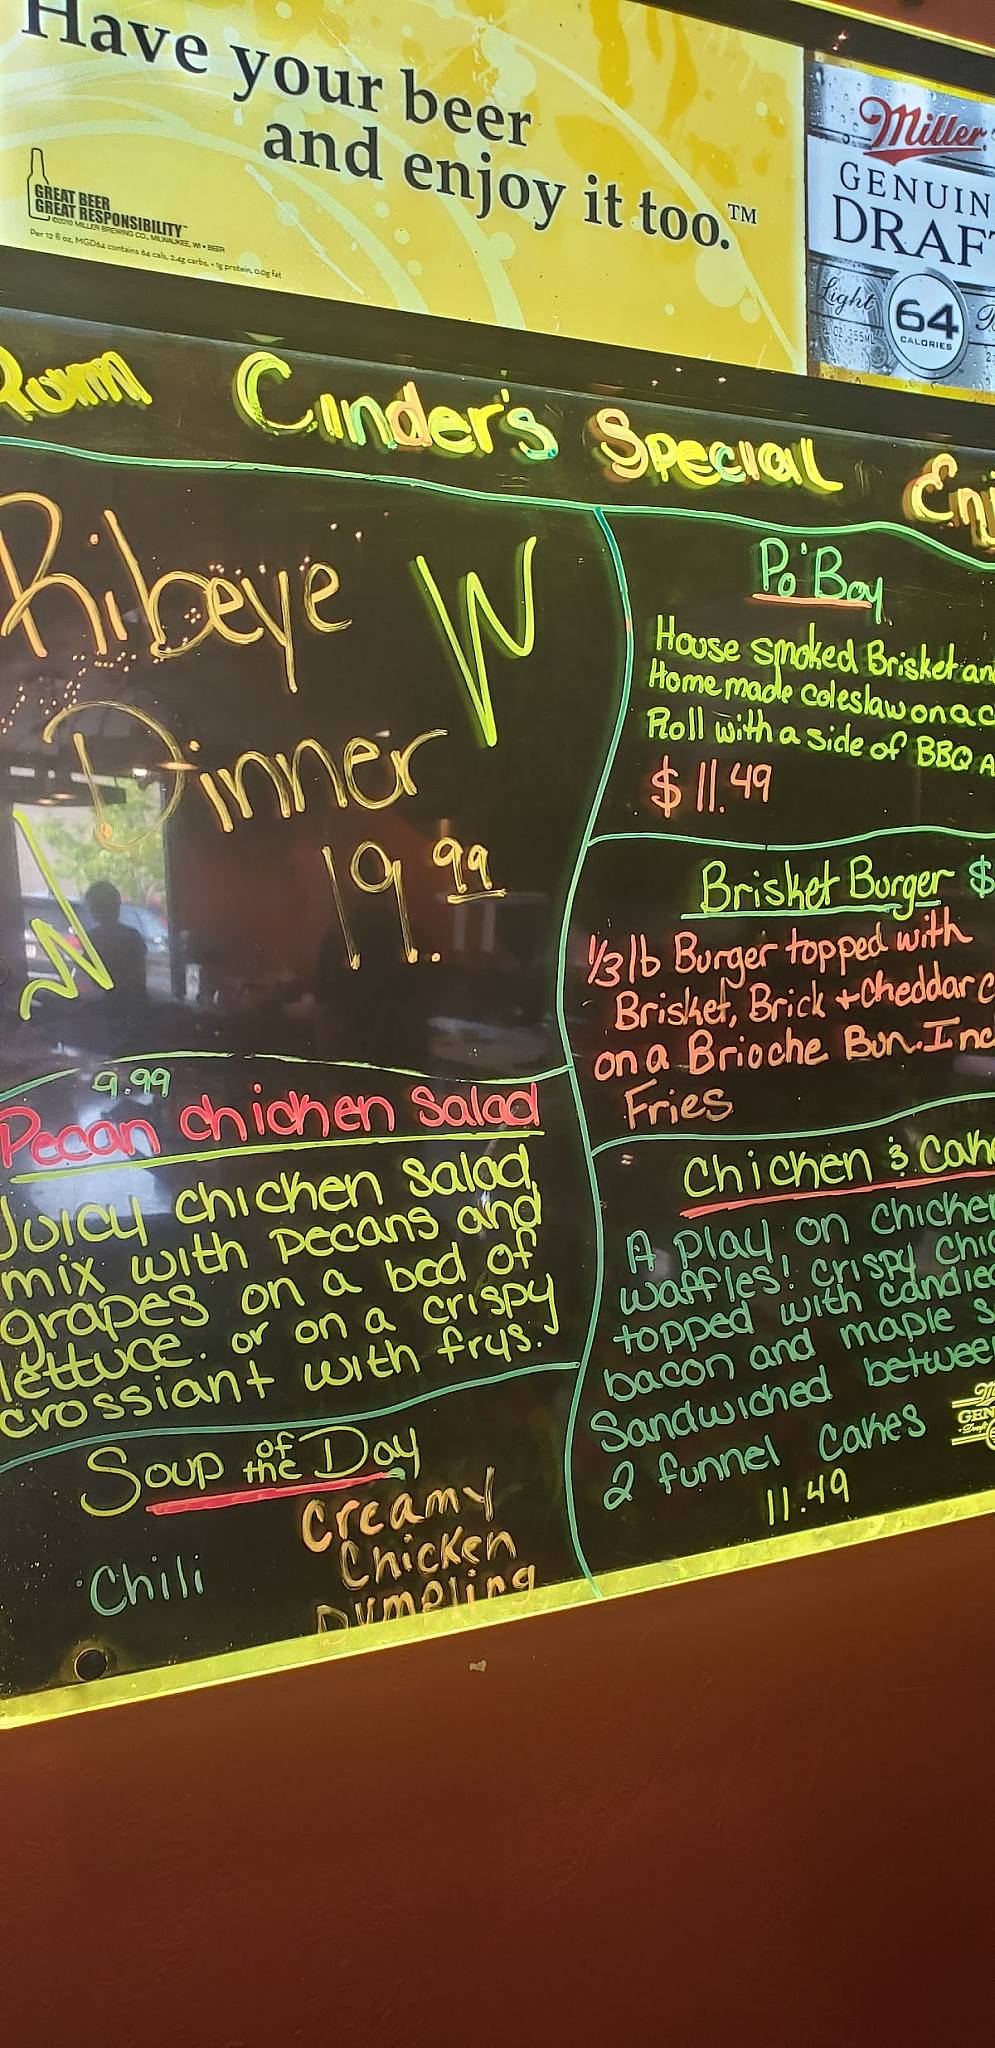 Have your beer
and enjoy it too.™
GREAT BEER
GREAT RESPONSIBILITY™
©2010 MILLER BREWING CO., MILWAUKEE, WI • BEER
Per 12 fl oz, MGD64 contains 64 cals, 2.4g carbs, <1g protein, 0.0g fat
Miller
GENUIN
DRAF
Light
64
CALORIES
Cinder's Special Enj
Ribeye
Dinner
19.99
Po'Boy
House smoked Brisket an
Homemade coleslaw on a c
Roll with a side of BBQ A
$11.49
Brisket Burger $
1/3 lb Burger topped with
Brisket, Brick + cheddar c
on a Brioche Bun. Inc
Fries
9.99
Pecan chicken salad
Juicy chicken salad
mix with pecans and
grapes on a bed of
lettuce. or on a crispy
crossiant with frys.
Chicken & Cak
A play on chicken
waffles! crispy chic
topped with candied
bacon and maple s
Sandwiched between
2 funnel cakes
11.49
Soup of the Day
Chili
Creamy
Chicken
Dumpling